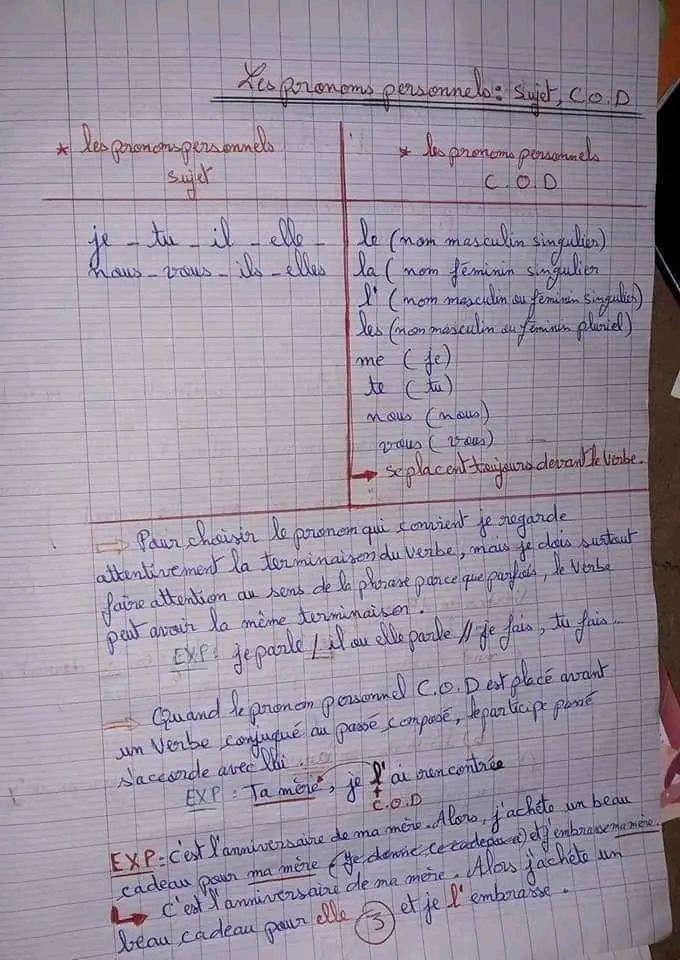 Les pronoms personnels: Sujet, C.O.D
* les pronoms personnels
sujet
* les pronoms personnels
C.O.D
je - tu - il - elle -
nous - vous - ils - elles
le (nom masculin singulier)
la ( nom féminin singulier
l' ( nom masculin ou féminin singulier)
les (nom masculin ou féminin pluriel)
me ( je)
te ( tu)
nous ( nous)
vous ( vous)
→ se placent toujours devant le verbe.
⇒ Pour choisir le pronom qui convient je regarde
attentivement la terminaison du verbe, mais je dois surtout
faire attention au sens de la phrase parce que parfois, le verbe
peut avoir la même terminaison.
EXP: je parle / il ou elle parle // je fais, tu fais..
⇒ Quand le pronom personnel C.O.D est placé avant
un verbe conjugué au passé composé, le participe passé
s'accorde avec lui.
EXP: Ta mère, je l'ai rencontrée
C.O.D
EXP: c'est l'anniversaire de ma mère. Alors, j'achète un beau
cadeau pour ma mère (je donne ce cadeau à) et j'embrasse ma mère.
→ c'est l'anniversaire de ma mère. Alors j'achète un
beau cadeau pour elle et je l'embrasse.
3